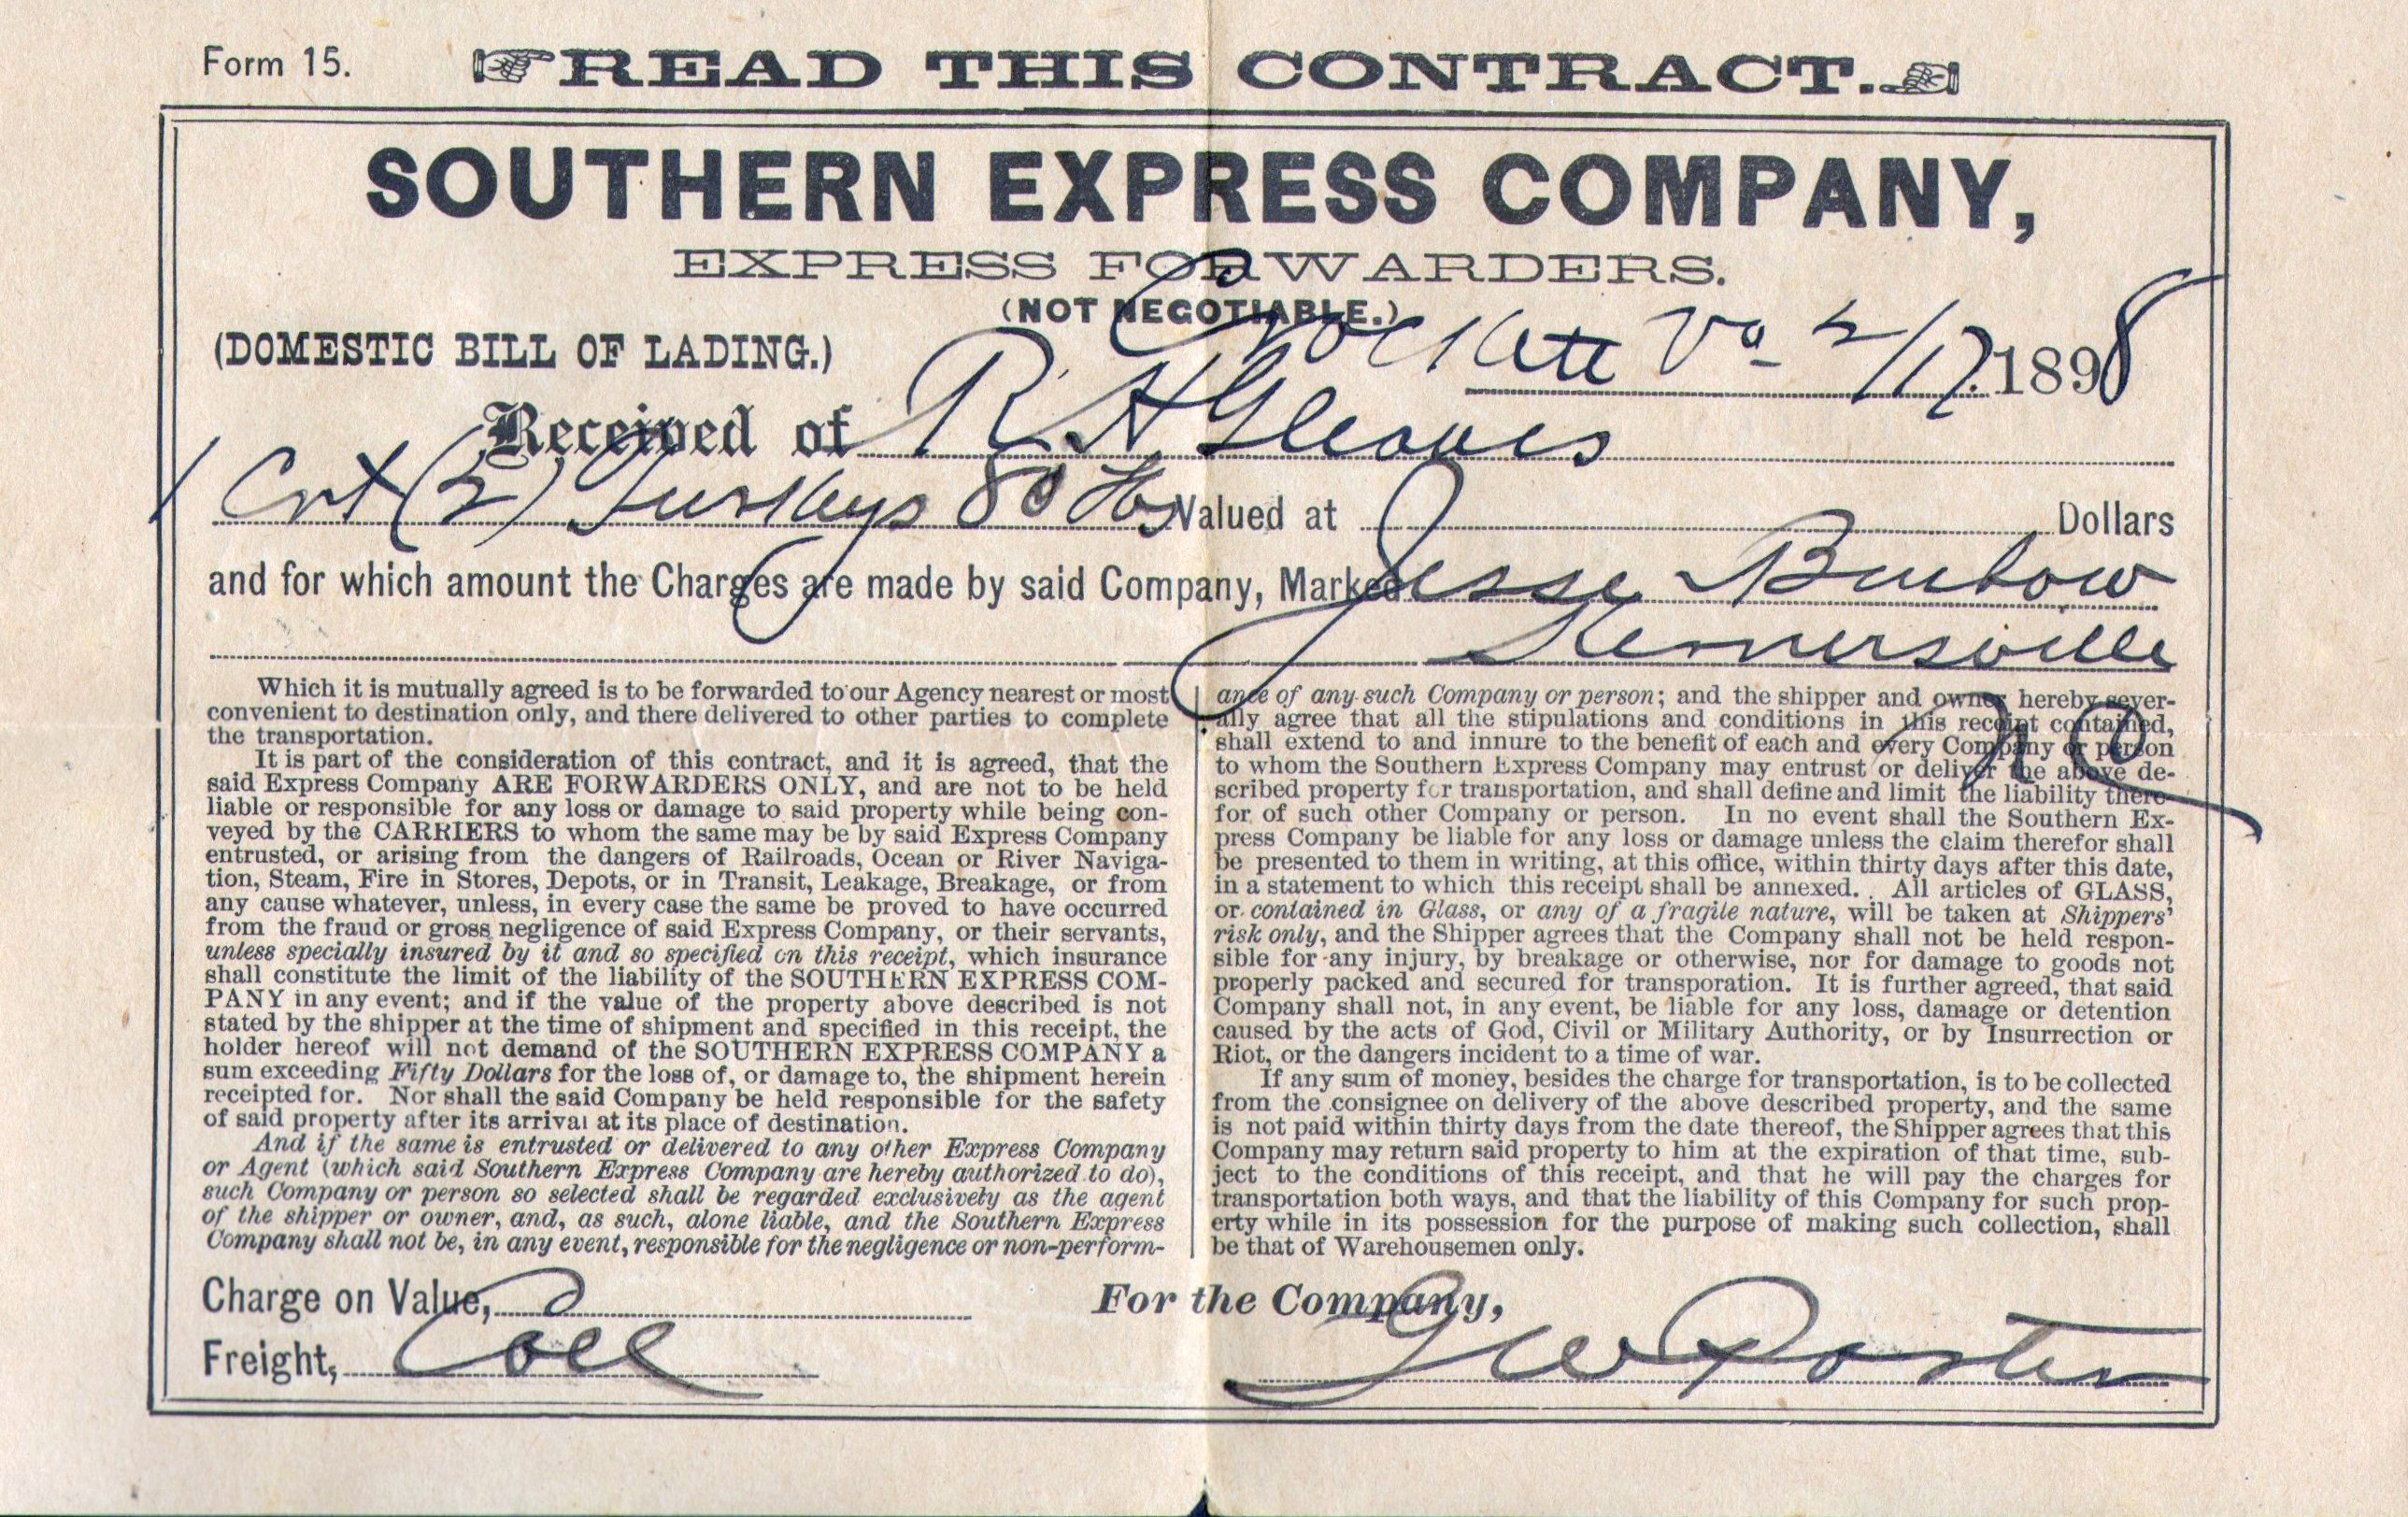 Form 15. READ THIS CONTRACT.
SOUTHERN EXPRESS COMPANY,
EXPRESS FORWARDERS.
(NOT NEGOTIABLE.)
(DOMESTIC BILL OF LADING.) Crockett Va 2/17 1898
Received of R A Gleaves
1 Crt (2) Turkeys 80 lbs Valued at Dollars
and for which amount the Charges are made by said Company, Marked Jesse
Kernersville
N C
Which it is mutually agreed is to be forwarded to our Agency nearest or most
convenient to destination only, and there delivered to other parties to complete
the transportation.
It is part of the consideration of this contract, and it is agreed, that the
said Express Company ARE FORWARDERS ONLY, and are not to be held
liable or responsible for any loss or damage to said property while being con-
veyed by the CARRIERS to whom the same may be by said Express Company
entrusted, or arising from the dangers of Railroads, Ocean or River Naviga-
tion, Steam, Fire in Stores, Depots, or in Transit, Leakage, Breakage, or from
any cause whatever, unless, in every case the same be proved to have occurred
from the fraud or gross negligence of said Express Company, or their servants,
unless specially insured by it and so specified on this receipt, which insurance
shall constitute the limit of the liability of the SOUTHERN EXPRESS COM-
PANY in any event; and if the value of the property above described is not
stated by the shipper at the time of shipment and specified in this receipt, the
holder hereof will not demand of the SOUTHERN EXPRESS COMPANY a
sum exceeding Fifty Dollars for the loss of, or damage to, the shipment herein
receipted for. Nor shall the said Company be held responsible for the safety
of said property after its arrival at its place of destination.
And if the same is entrusted or delivered to any other Express Company
or Agent (which said Southern Express Company are hereby authorized to do),
such Company or person so selected shall be regarded exclusively as the agent
of the shipper or owner, and, as such, alone liable, and the Southern Express
Company shall not be, in any event, responsible for the negligence or non-perform-
ance of any such Company or person; and the shipper and owner hereby sever-
ally agree that all the stipulations and conditions in this receipt contained,
shall extend to and innure to the benefit of each and every Company or person
to whom the Southern Express Company may entrust or deliver the above de-
scribed property for transportation, and shall define and limit the liability there-
for of such other Company or person. In no event shall the Southern Ex-
press Company be liable for any loss or damage unless the claim therefor shall
be presented to them in writing, at this office, within thirty days after this date,
in a statement to which this receipt shall be annexed. All articles of GLASS,
or contained in Glass, or any of a fragile nature, will be taken at Shippers'
risk only, and the Shipper agrees that the Company shall not be held respon-
sible for any injury, by breakage or otherwise, nor for damage to goods not
properly packed and secured for transporation. It is further agreed, that said
Company shall not, in any event, be liable for any loss, damage or detention
caused by the acts of God, Civil or Military Authority, or by Insurrection or
Riot, or the dangers incident to a time of war.
If any sum of money, besides the charge for transportation, is to be collected
from the consignee on delivery of the above described property, and the same
is not paid within thirty days from the date thereof, the Shipper agrees that this
Company may return said property to him at the expiration of that time, sub-
ject to the conditions of this receipt, and that he will pay the charges for
transportation both ways, and that the liability of this Company for such prop-
erty while in its possession for the purpose of making such collection, shall
be that of Warehousemen only.
Charge on Value, For the Company,
Freight, Coll G W Poster